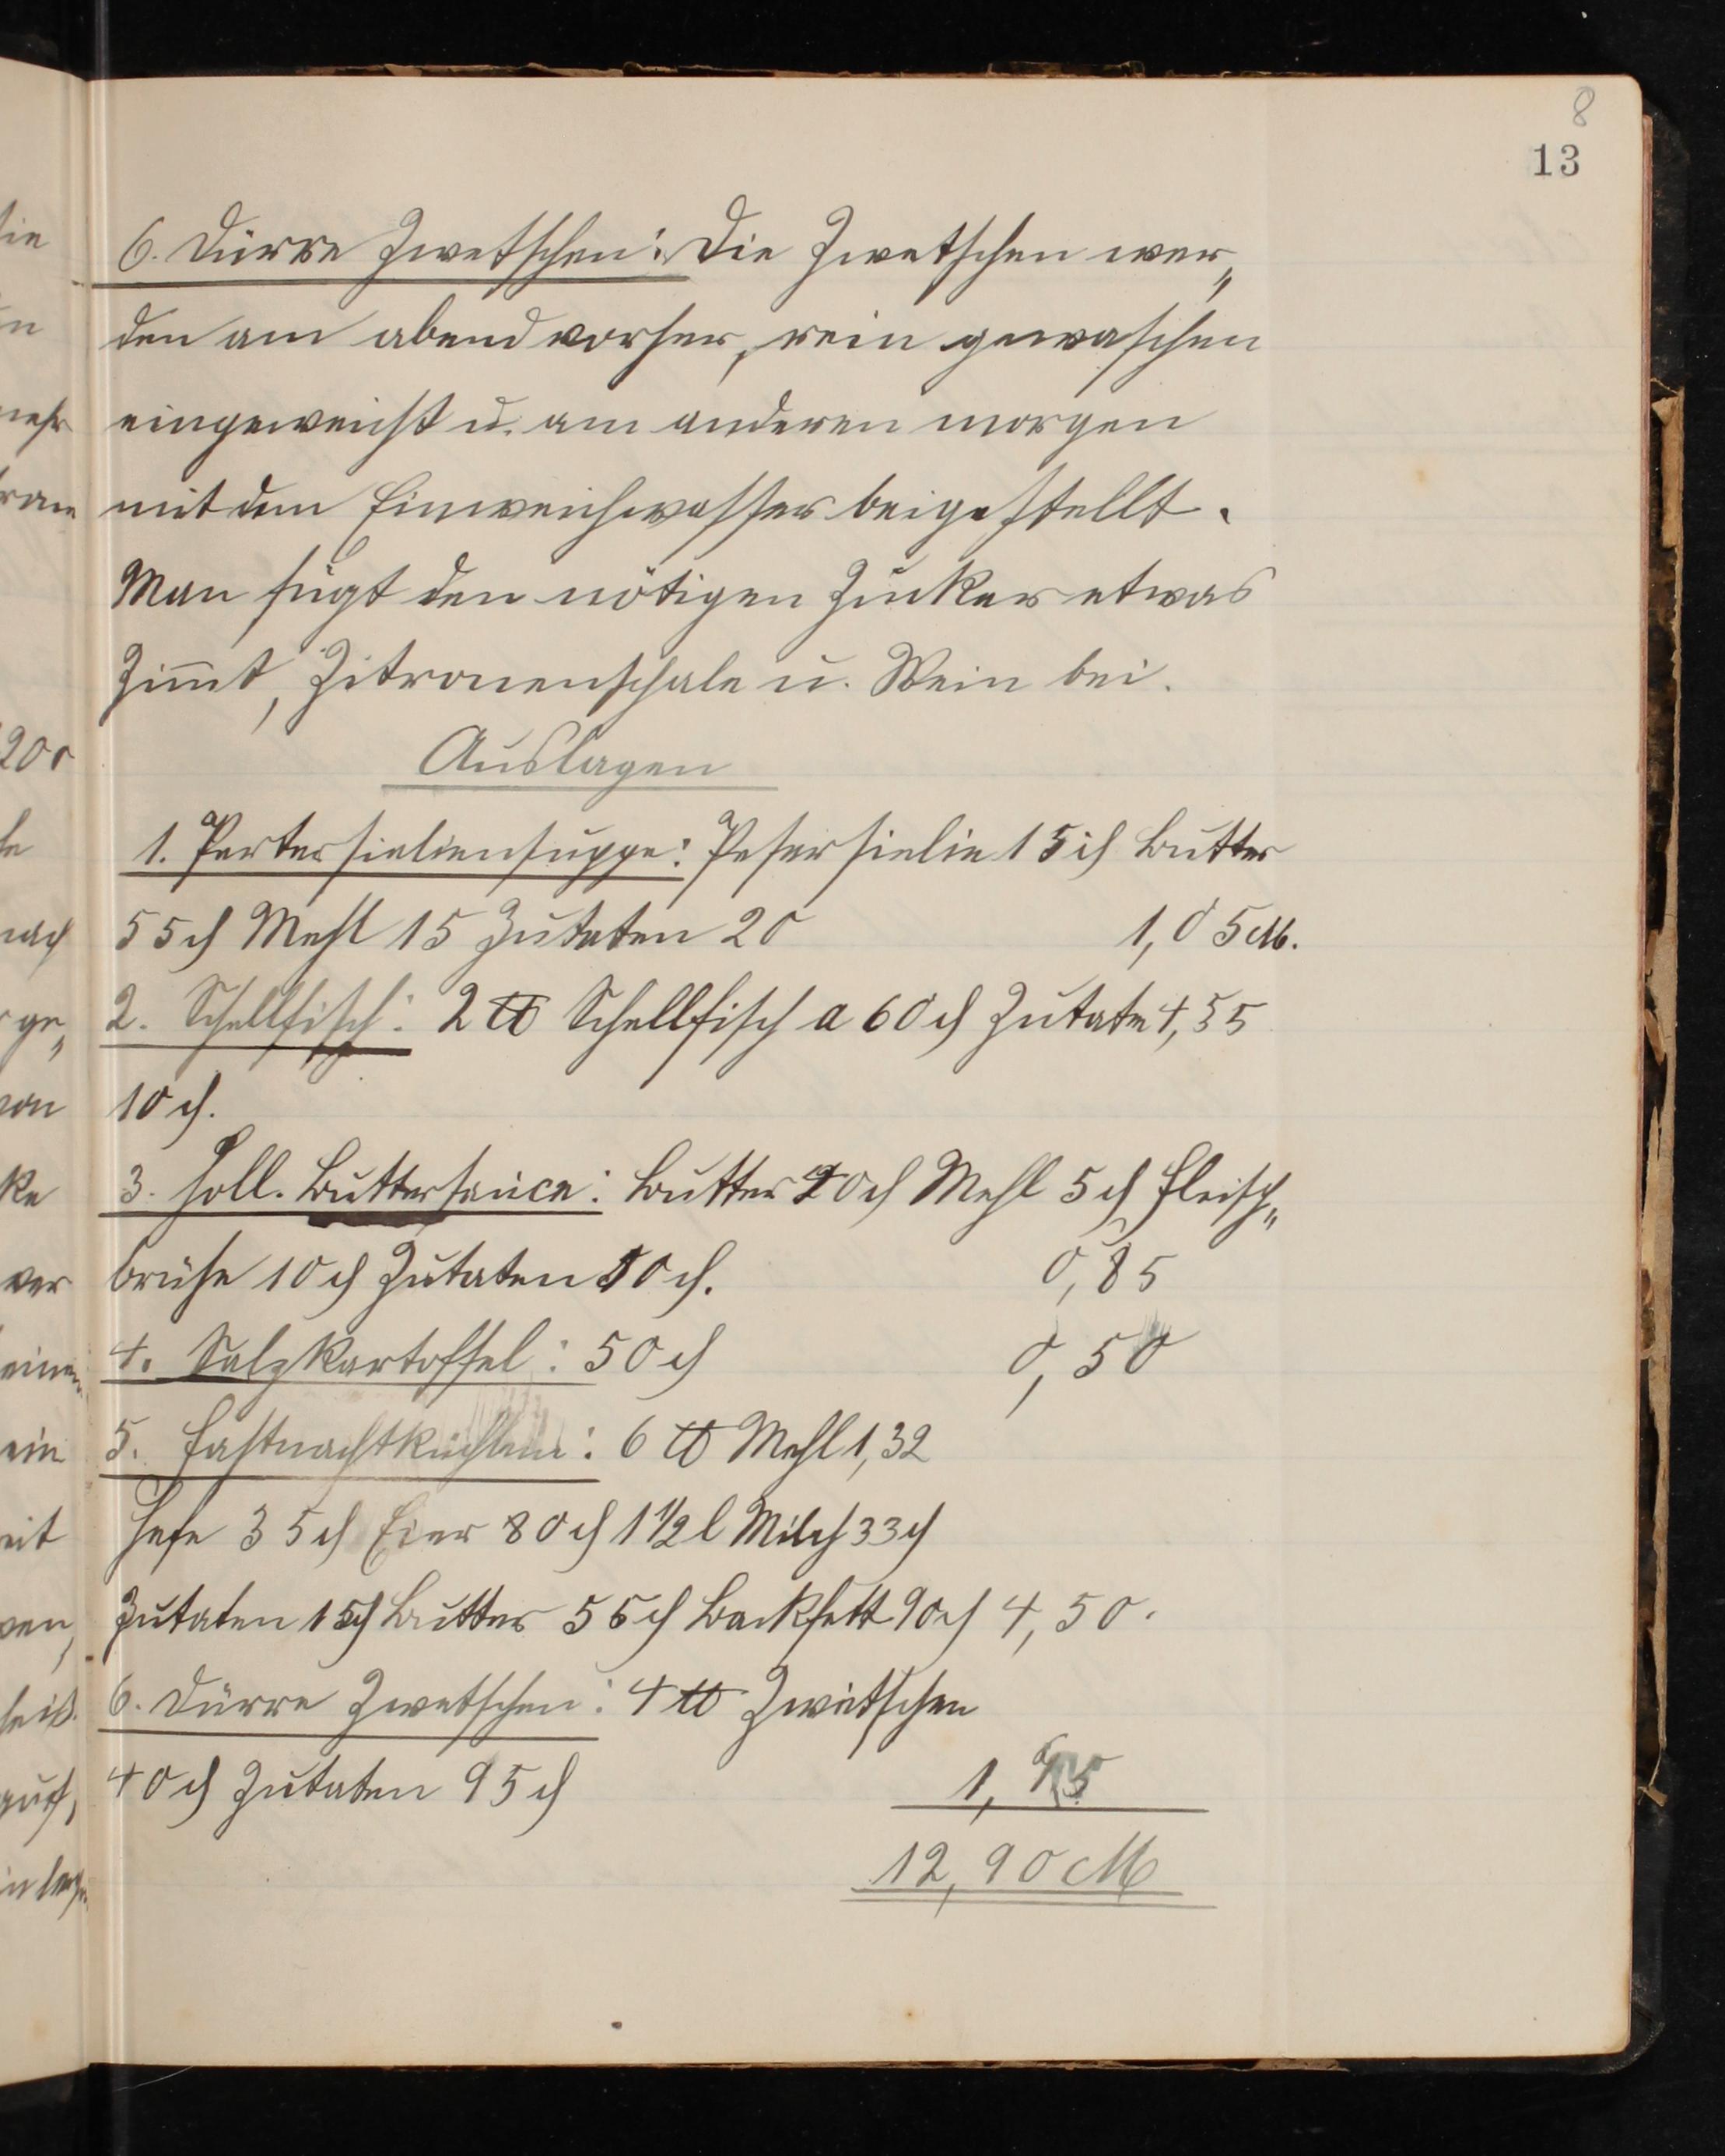 8
13
6. Dürre Zwetschen: Die Zwetschen wer„
den am abend vorher, rein gewaschen
eingeweicht u. am anderen morgen
mit dem Einweichwasser beigestellt.
Man fügt den nötigen Zucker etwas
Zim̅t, Zitronenschale u. Wein bei.
Auslagen
1. Pertersieliensuppe: Petersielie 15 ₰ Butter
55 ₰ Mehl 15 Zutaten 20 1,05 M.
2. Schellfisch: 2 ℔ Schellfisch a 60 ₰ Zutaten 4,55
10 ₰.
3. Holl. Buttersauce: Butter 20 ₰ Mehl 5 ₰ Fleisch„
brühe 10 ₰ Zutaten 50 ₰. 0,85
4. Salzkartoffel: 50 ₰ 0,50
5. Fastnachtküchlein: 6 ℔ Mehl 1,32
Hefe 35 ₰ Eier 80 ₰ 1 1/2 l Milch 33 ₰
Zutaten 15 ₰ Butter 55 ₰ Backfett 90 ₰ 4,50.
6. Dürre Zwetschen: 4 ℔ Zwetschen
40 ₰ Zutaten 95 ₰ 1,
12,90 M